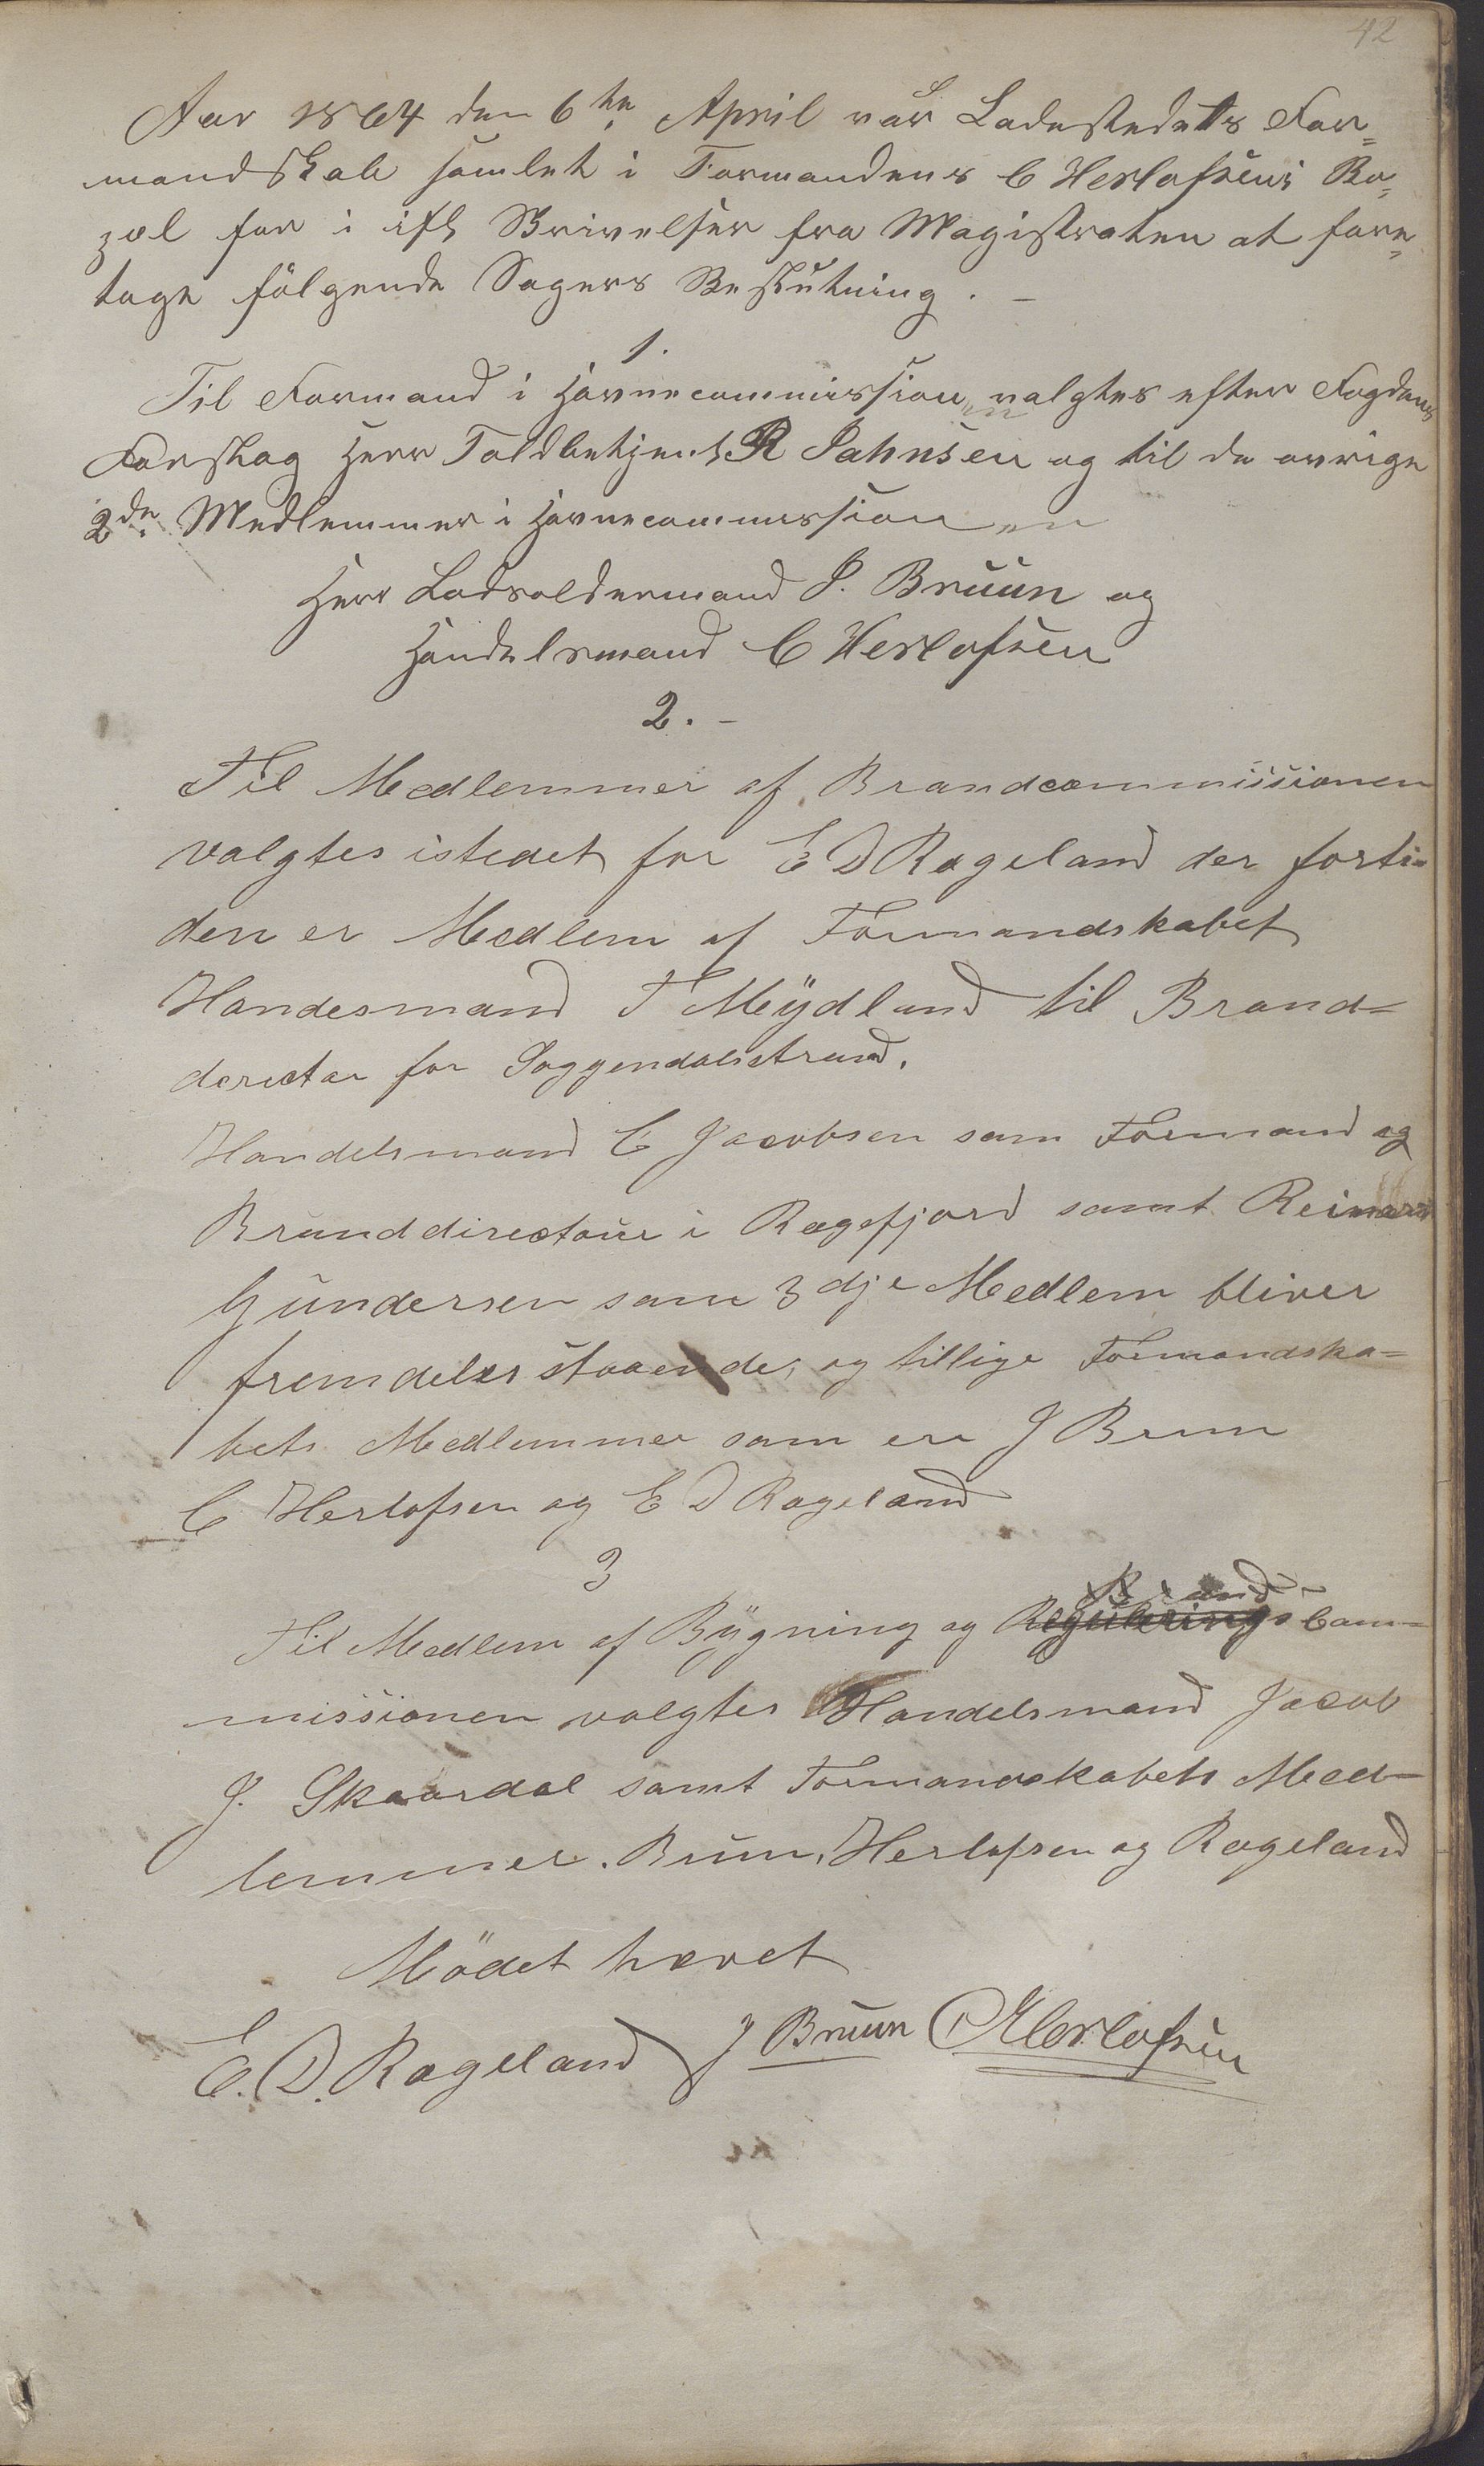 42
Aar 1864 den 6te April var Ladestedets For=
mandskab samlet i Formandens C Herlofsens Bo¬
pæl for i ifl Skrivelser fra Magistraten at fore¬
tage følgende Sagers Beslutning. –
1.
Til Formand i Havnecommissionen valgtes efter Fogdens
Forslag Herr Toldbetjent R Jahnsen og til de øvrige
2de Medlemmer i Havnecommissionen
Herr Lodsoldermand J. Bruun og
Handelsmand C Herlofsen
2. –
Til Medlemmer af Brandcommissionen
valgtes istedet for E D Rageland der forti=
den er Medlem af Formandskabet
Handesmand T Mÿdland til Brand=
derectør for Soggendalsstrand.
Handelsmand C Jacobsen som Formand og
Branddirectour i Rægefjord samt Reinert
Gundersen som 3dje Medlem bliver
fremdeles staaende, og tillige Formandska=
bets Medlemmer som ere J Bruun
C Herlofsen og E D Rageland
3
Til Medlem af Bÿgning og Regulerings Com=
missionen valgtes Handelsmand Jacob
J. Skaardal samt Formandskabets Med=
lemmer. Bruun, Herlofsen og Rageland
Mödet hævet
E. D. Rageland J Bruun C Herlofsen